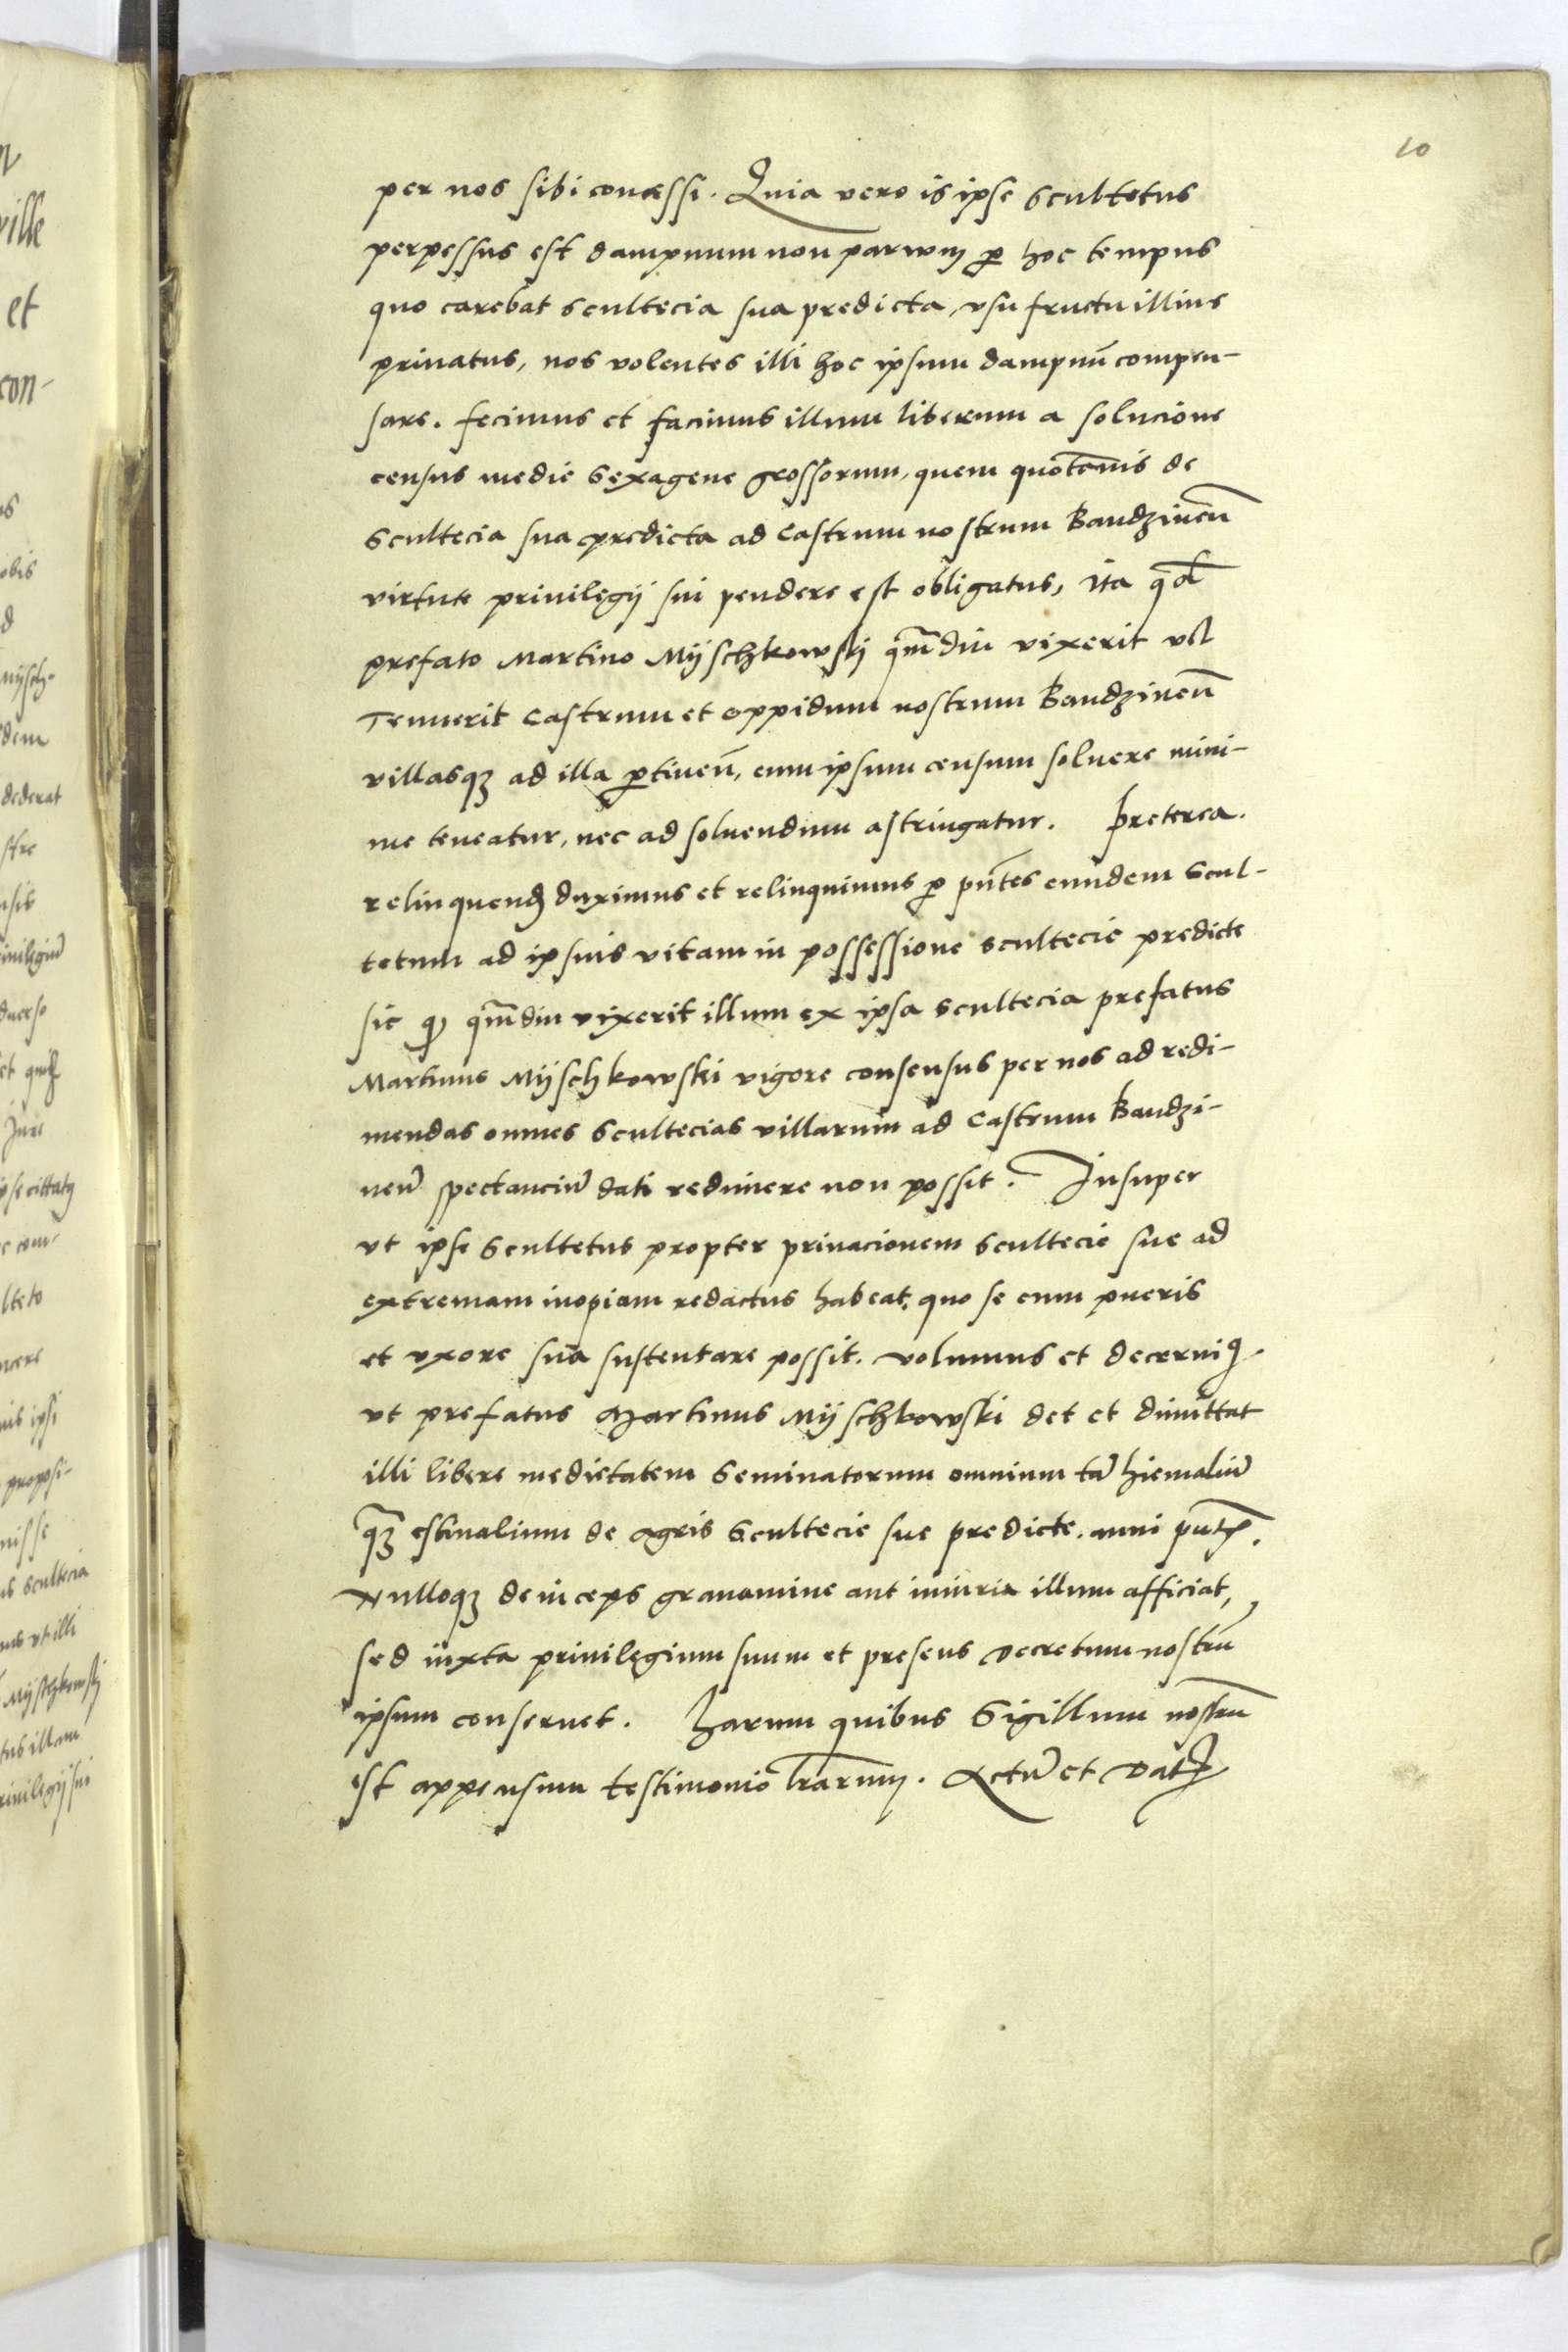 10
per nos sibi concessi. Quia vero is ipse Scultetus
perpessus est dampnum non parwm ꝑ hoc tempus
quo carebat Scultecia sua predicta, vsu fructu illius
priuatus, nos volentes illi hoc ipsum dampnū compen-
sare. fecimus et facimus illum liberum a solucione
census medie Sexagene grossorum, quem quotānis de
Scultecia sua predicta ad Castrum nostrum Bandzinen̄
virtute priuilegij sui pendere est obligatus, Ita qd̄
prefato Martino Mÿschkowskj qm̄diu vixerit vl̄
Tenuerit Castrum et oppidum nostrum Bandzinen̄
villasqꝫ ad illa ꝑtinen̄, eum ipsum censum soluere mini-
me teneatur, nec ad soluendum astringatur. Preterea.
relinquend̨ duximus et relinquimus ꝑ pn̄tes eundem Scul-
tetum ad ipsius vitam in possessione scultecie predicte
sic qꝫ qm̄diu vixerit illum ex ipsa scultecia prefatus
Martinus Mÿschkowski vigore consensus per nos ad redi-
mendas omnes Scultecias villarum ad Castrum Bandzi-
nen̄ spectanciū dati redimere non possit. Insuper
vt ipse Scultetus propter priuacionem scultecie sue ad
extremam inopiam redactus habeat, quo se cum pueris
et vxore sua sustentare possit. volumus et decerniꝯ.
vt prefatus Martinus Mÿschkowski det et dimittat
illi libere medietatem Seminatorum omnium tā hiemaliū
qꝫ̄ estiualium de Agris Scultecie sue predicte. anni pn̄tꝭ.
Nulloqꝫ deinceps grauamine aut iniuria illum afficiat,
sed iuxta priuilegium suum et presens Decretum nostrū
ipsum conseruet. Harum quibus Sigillum nostrū
est appensum testimonio lr̄arum. Actū et Datꝭ